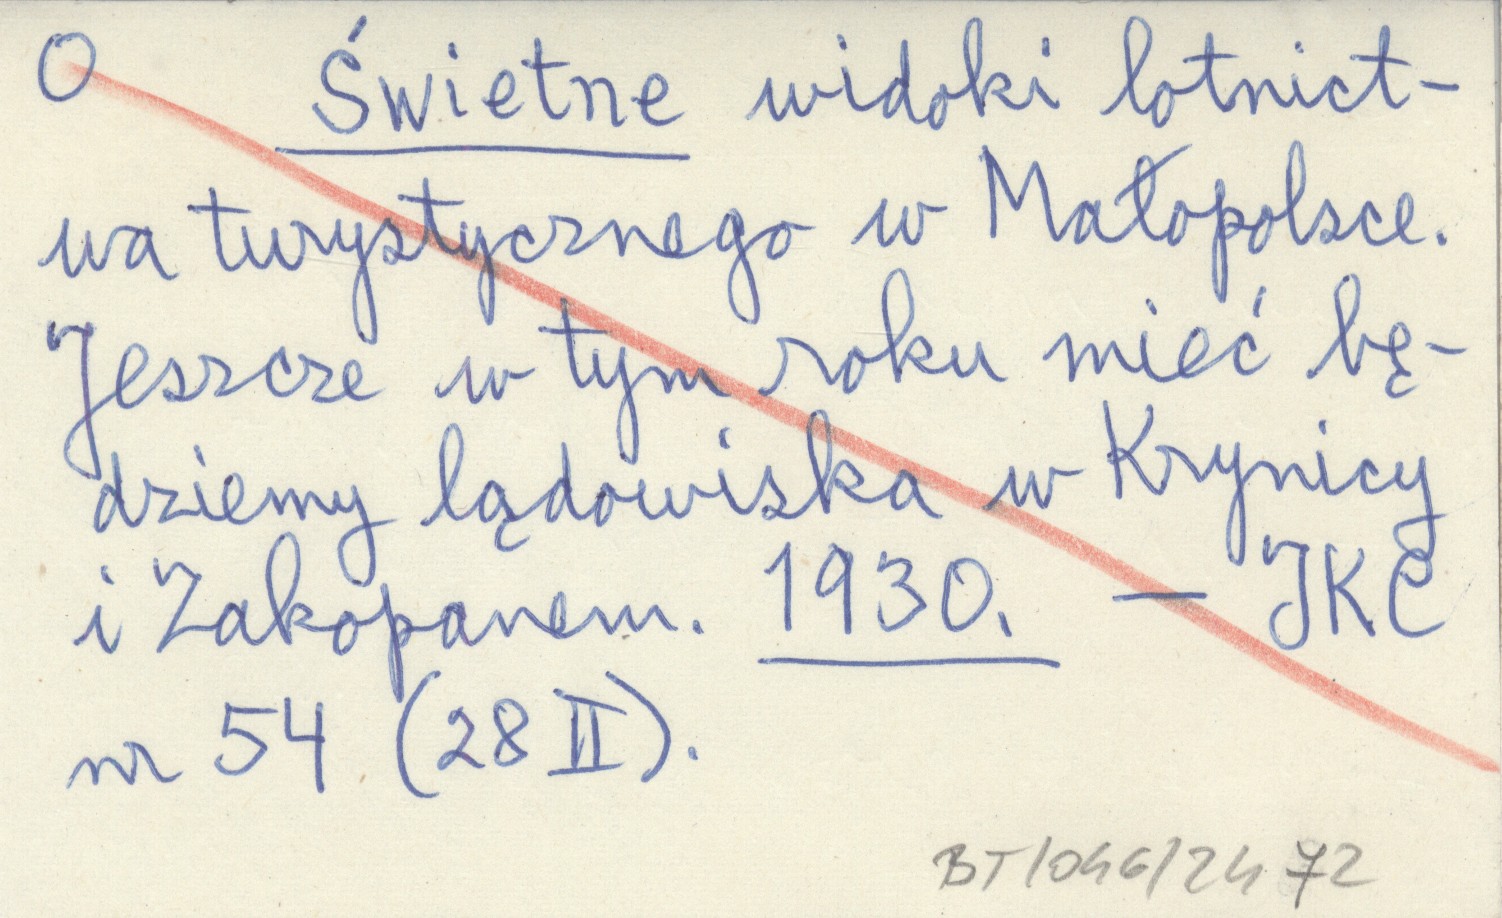 O Świetne widoki lotnict-
wa turystycznego w Małopolsce.
Jeszcze w tym roku mieć bę-
dziemy lądowiska w Krynicy
i Zakopanem. 1930. — JKC
nr 54 (28 II).
BT/046/24 72